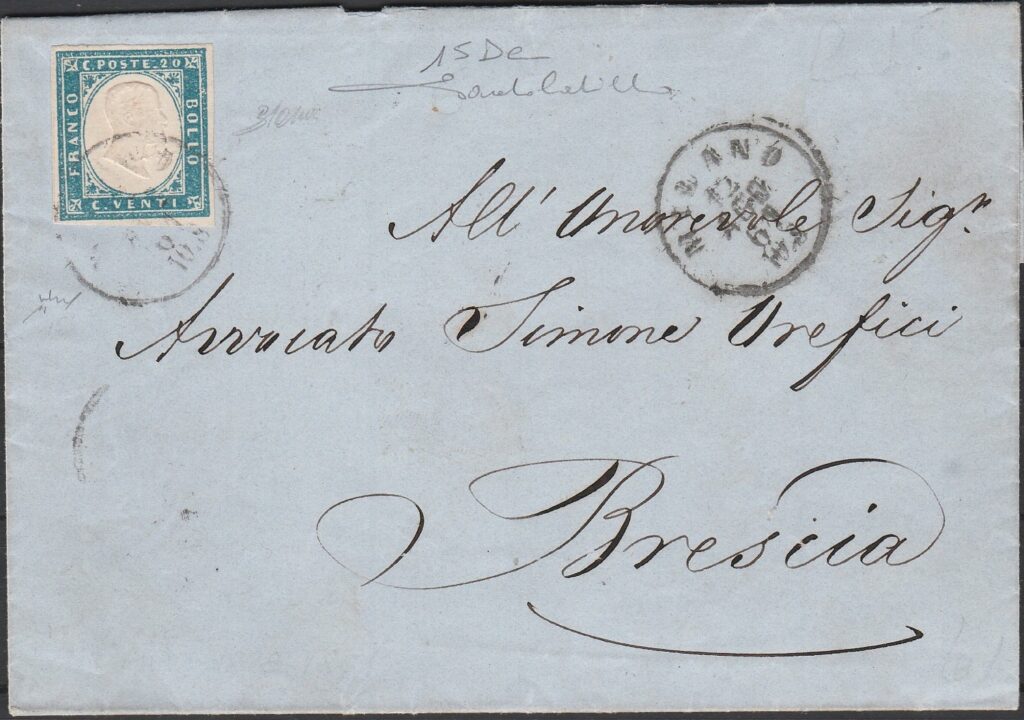 C. POSTE. 20
FRANCO
BOLLO
C. VENTI
15De
MILANO
All' Onorevole Sigr.
Avvocato Simone Orefici
Brescia